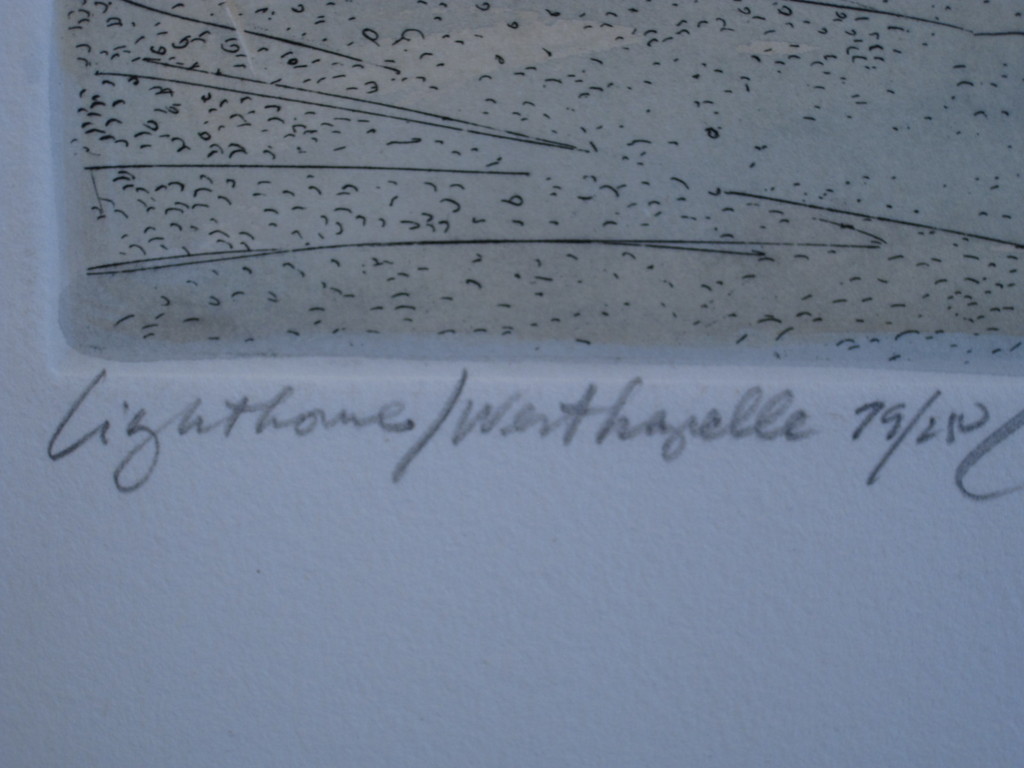 Lighthouse/Westkapelle 79/250